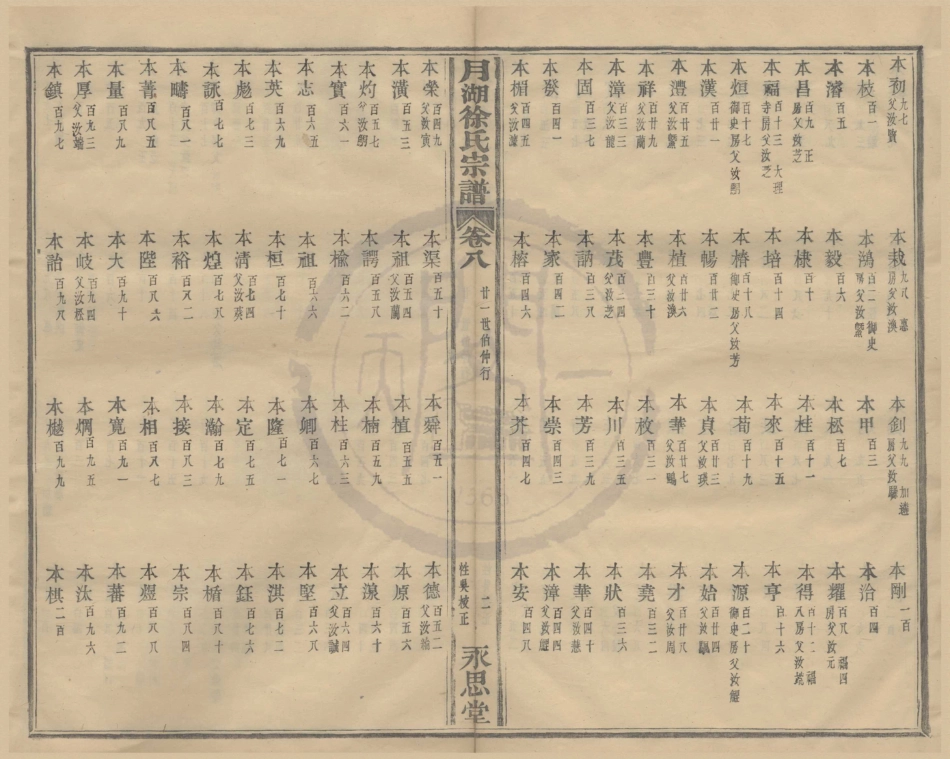 本初九七父汝賢 本栽九八惠房父汝渙 本釗九九加遺房父汝驂 本剛一百
本枝百一 本鴻百二御史房父汝鑾 本甲百三 本治百四
本濬百五 本毅百六 本松百七 本耀百八福四房父汝元
本昌百九正房父汝芝 本棣百十 本桂百十一 本得百十二福八房父汝
本福百十三大理寺房父汝芝 本培百十四 本來百十五 本亨百十六
本烜百十七御史房父汝剛 本椿百十八御史房父汝芳 本荀百十九 本源百二十御史房父汝鯤
本漢百廿一 本暢百廿二 本貞百廿三父汝瑛 本始百廿四父汝
本澧百廿五父汝鑾 本植百廿六父汝渙 本華百廿七父汝鶴 本才百廿八父汝周
本祥百廿九父汝蘭 本豐百三十 本枚百三一 本堯百三二
本漳百三三父汝龍 本茂百三四 本川百三五 本狀百三六
本固百三七 本訥百三八 本芳百三九 本華百四十父汝慈
本燚百四一 本家百四二 本崇百四三 本漳百四四父汝慶
本楣百四五父汝濂 本榕百四六 本芥百四七 本安百四八
月湖徐氏宗譜 卷八 廿一世伯仲行 二 性與校正 永思堂
本榮百四九父汝寅 本渠百五十 本舜百五一 本德百五二父汝翰
本潢百五三 本祖百五四父汝蘭 本植百五五 本原百五六
本灼百五七父汝剛 本諤百五八 本楠百五九 本湶百六十
本實百六一 本楹百六二 本柱百六三 本立百六四父汝誠
本志百六五 本祖百六六 本卿百六七 本堅百六八
本英百六九 本桓百七十 本隆百七一 本淇百七二
本彪百七三 本清百七四父汝英 本定百七五 本鈺百七六
本詠百七七 本煌百七八 本瀚百七九 本楯百八十
本疇百八一 本裕百八二 本接百八三 本宗百八四
本菁百八五 本陛百八六 本相百八七 本煜百八八
本量百八九 本大百九十 本寬百九一 本蕃百九二
本厚百九三父汝端 本岐百九四父汝極 本烱百九五 本汰百九六
本鎮百九七 本詒百九八 本樾百九九 本棋二百